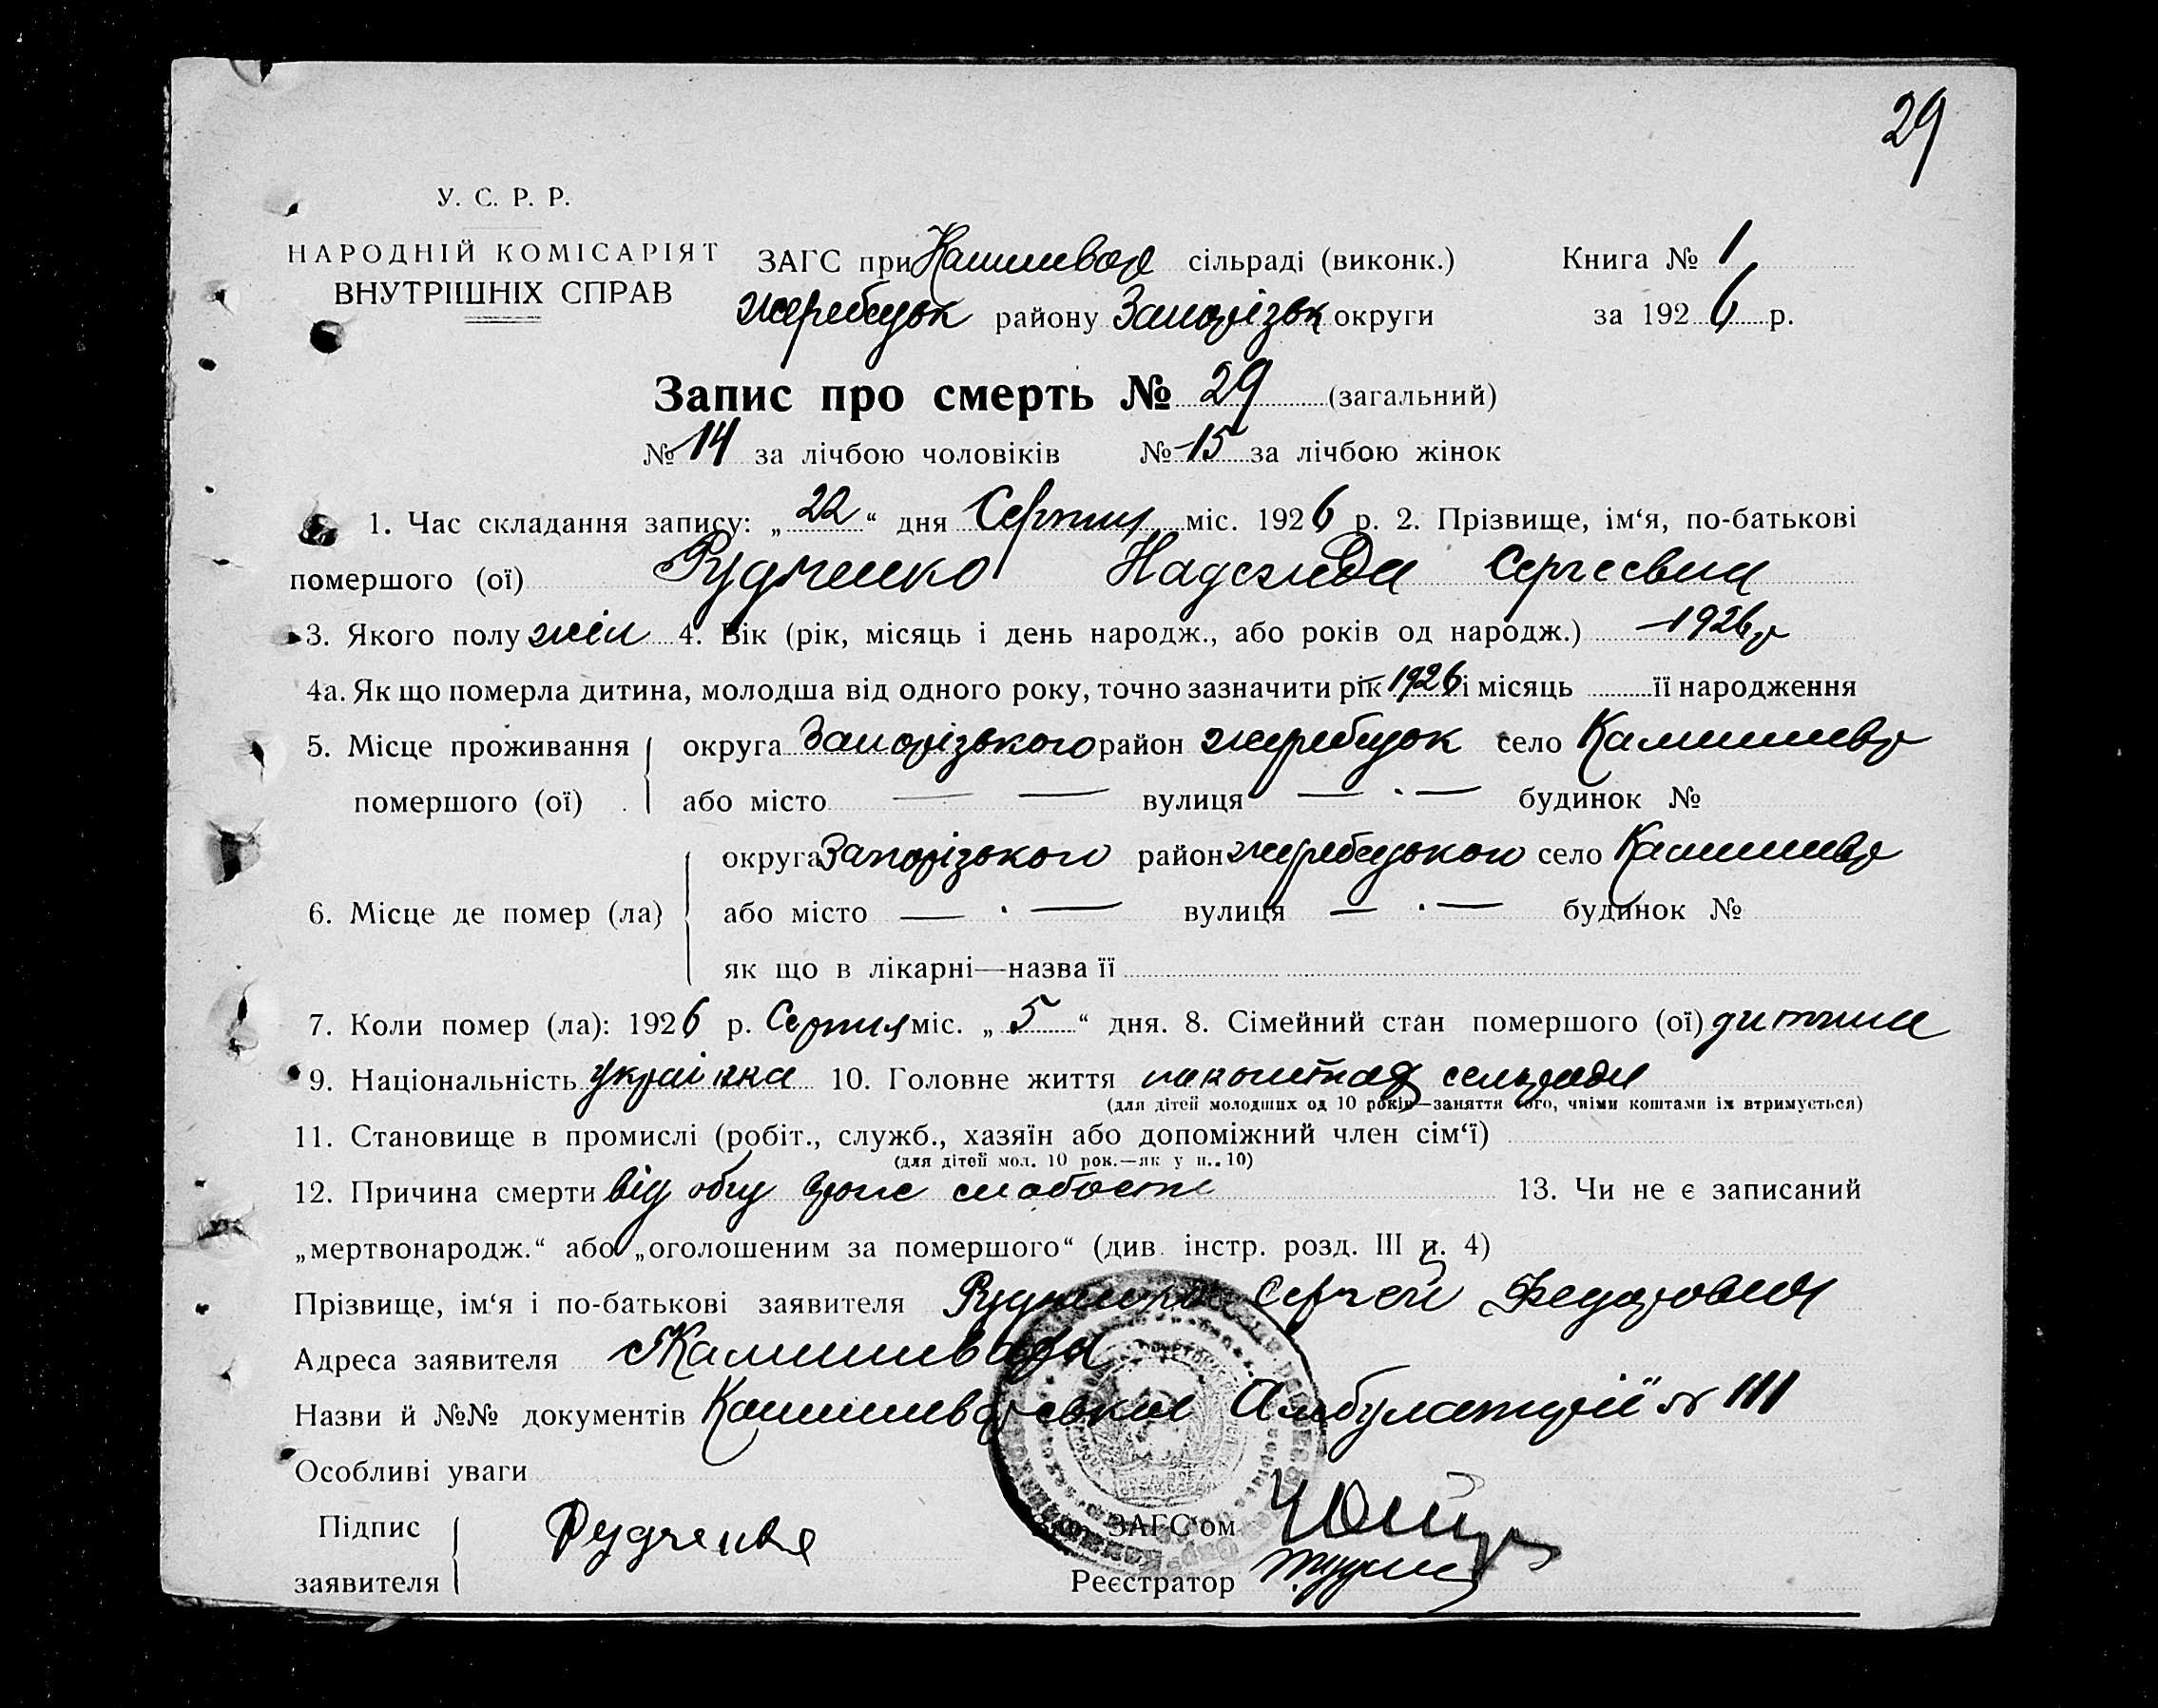 29
У. С. Р. Р.
НАРОДНІЙ КОМІСАРІЯТ
ВНУТРІШНІХ СПРАВ
ЗАГС при Камишевах сільраді (виконк.)
Жеребецьк району Запорізьк округи
Книга № 1
за 1926 р.
Запис про смерть № 29 (загальний)
№ 14 за лічбою чоловіків № 15 за лічбою жінок
1. Час складання запису: „22“ дня Серпня міс. 1926 р. 2. Прізвище, ім‘я, по-батькові
помершого (ої) Рудченко Надежда Сергеевна
3. Якого полу жін 4. Вік (рік, місяць і день народж., або років од народж.) 1926 р
4а. Як що померла дитина, молодша від одного року, точно зазначити рік 1926 і місяць її народження
5. Місце проживання помершого (ої) округа Запорізького район Жеребецьк село Камишевах
або місто — — вулиця — · — будинок №
6. Місце де помер (ла) округа Запорізького район Жеребецького село Камишевах
або місто — · — вулиця — · — будинок №
як що в лікарні—назва її
7. Коли помер (ла): 1926 р. Серпня міс. „5“ дня. 8. Сімейний стан помершого (ої) дитина
9. Національність украінка 10. Головне життя сельради
(для дітей молодших од 10 років—заняття того, чиїми коштами їх втримується)
11. Становище в промислі (робіт., служб., хазяїн або допоміжний член сім‘ї)
(для дітей мол. 10 рок.—як у п. 10)
12. Причина смерти від слабости 13. Чи не є записаний
„мертвонародж.“ або „оголошеним за помершого“ (див. інстр. розд. III п. 4)
Прізвище, ім‘я і по-батькові заявителя Рудченко Сергей Федорович
Адреса заявителя с Камишеваха
Назви й №№ документів Камишеваської Амбулаторії № 111
Особливі уваги
Підпис заявителя Рудченко
ЗАГС‘ом
Реєстратор